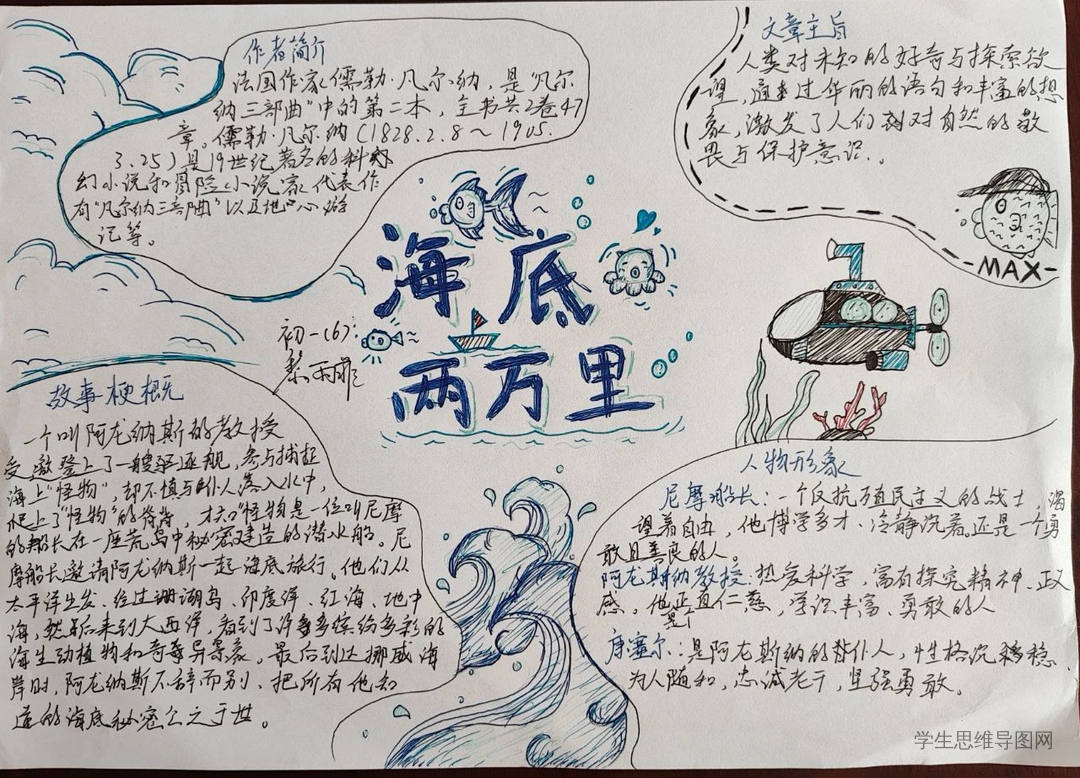 作者简介
法国作家儒勒·凡尔·纳,是"凡尔
纳三部曲"中的第二本,全书共2卷47
章。儒勒·凡尔纳(1828.2.8～1905.
3.25)是19世纪著名的科
幻小说和冒险小说家代表作
有"凡尔纳三部曲"以及地心游
记等。
文章主旨
人类对未知的好奇与探索欲
望,通过华丽的语句和丰富的想
象,激发了人们对自然的敬
畏与保护意识。
MAX
海底
两万里
初一(6):
故事梗概
一个叫阿龙纳斯的教授
受邀登上了一艘驱逐舰,参与捕捉
海上"怪物",却不慎与仆人落入水中,
爬上了"怪物"的脊背,才知怪物是一位叫尼摩
的船长在一座荒岛中秘密建造的潜水船。尼
摩船长邀请阿龙纳斯一起海底旅行。他们从
太平洋出发、经过珊瑚岛、印度洋、红海、地中
海,然后来到大西洋,看到了许多多缤纷多彩的
海生动植物和奇异景象。最后到达挪威海
岸时,阿龙纳斯不辞而别、把所有他知
道的海底秘密公之于世。
人物形象
尼摩船长:一个反抗殖民主义的战士,渴
望着自由,他博学多才、冷静沉着还是一个勇
敢且善良的人。
阿龙斯纳教授:热爱科学,富有探究精神、正义
感,他正直仁慈,学识丰富、勇敢的人
康塞尔:是阿龙斯纳的仆人,性格沉稳
为人随和,忠诚老干,坚强勇敢。
学生思维导图网